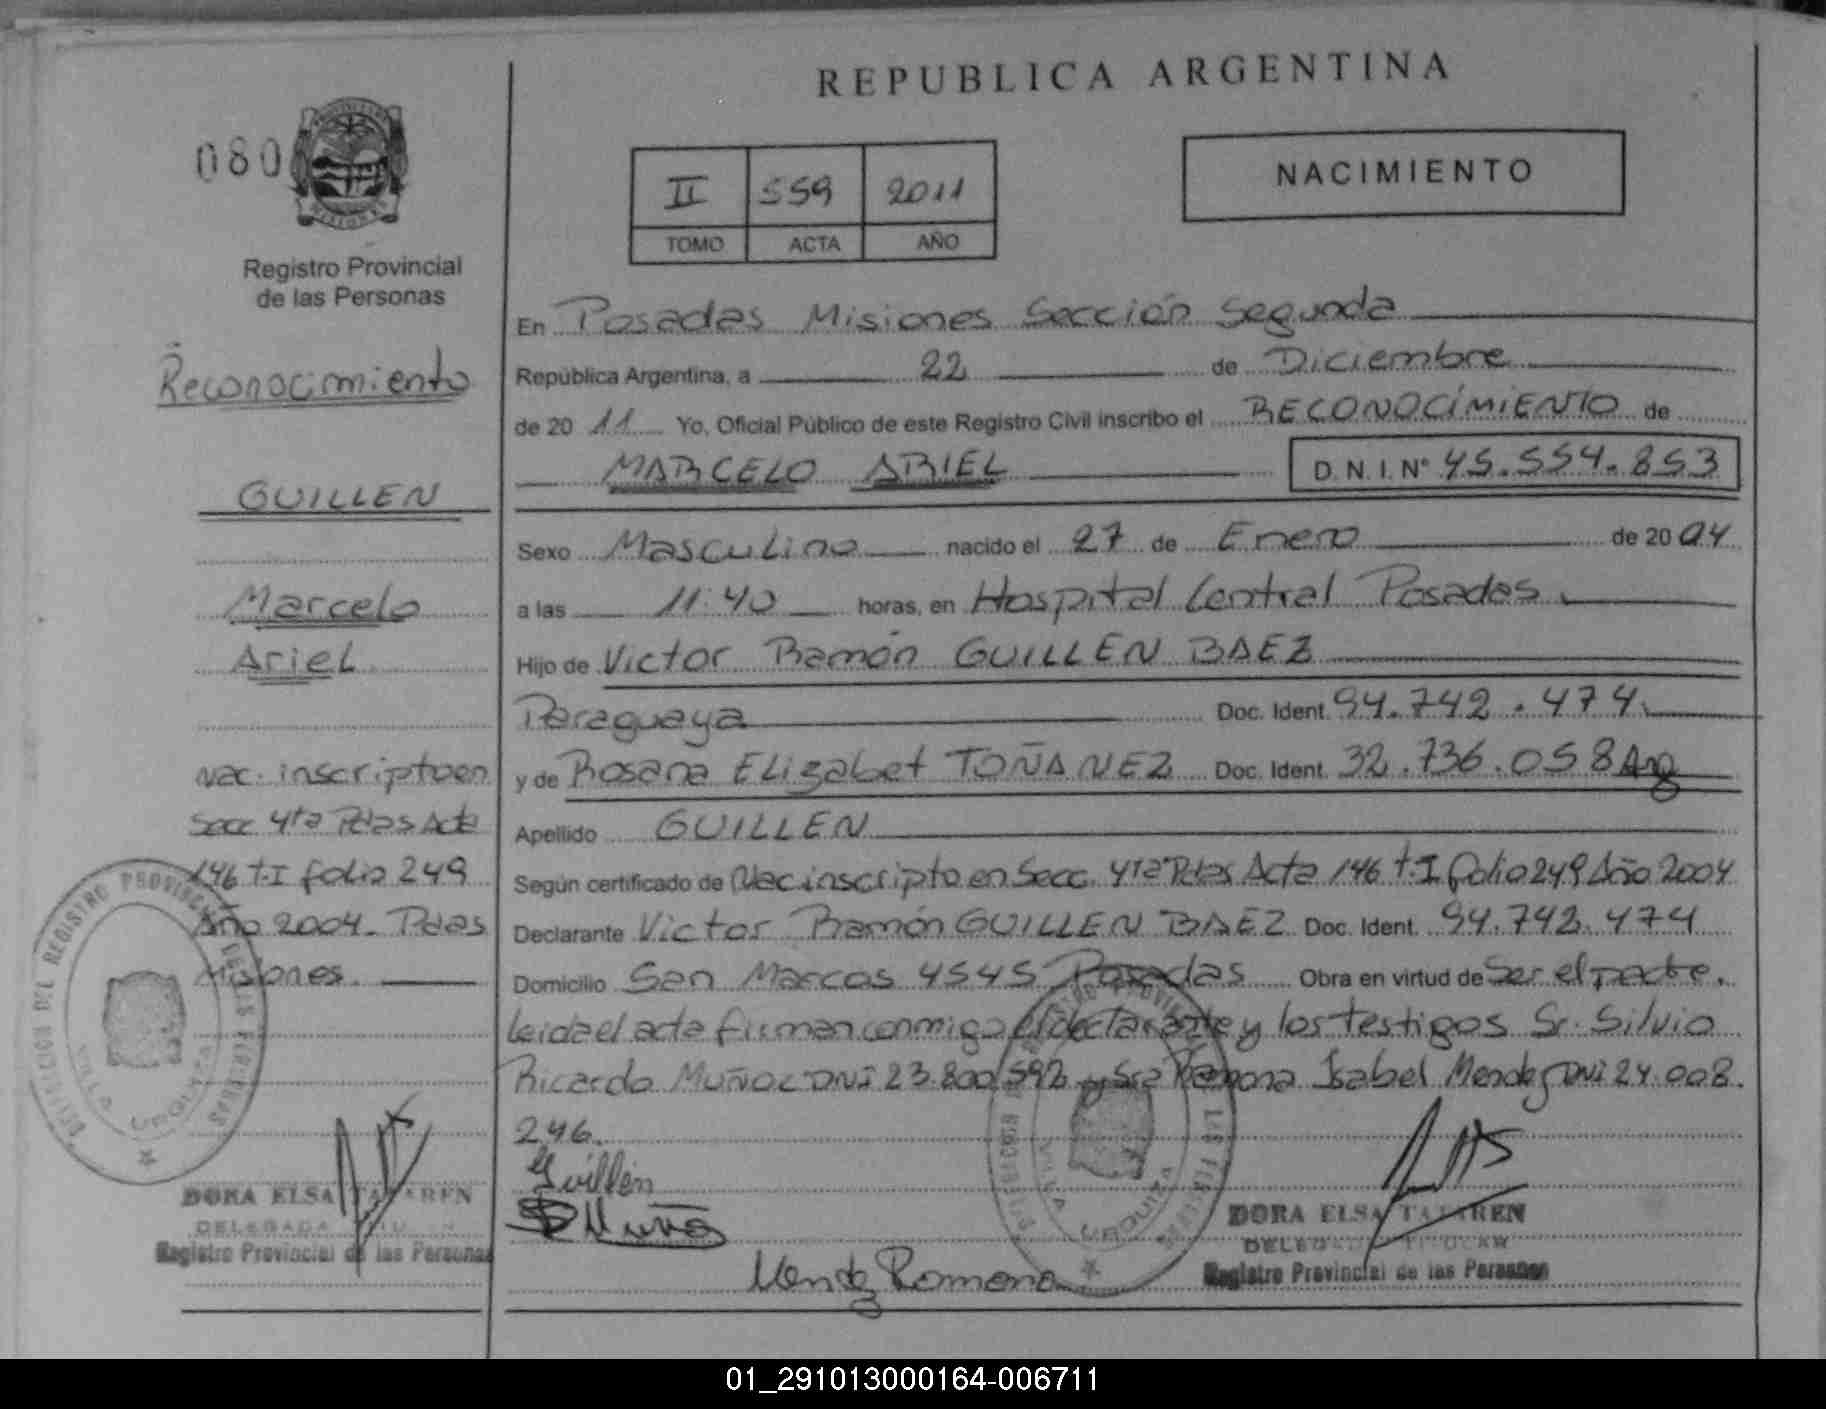 REPUBLICA ARGENTINA
080
Registro Provincial
de las Personas
Reconocimiento
GUILLEN
Marcelo
Ariel
Nac. inscripto en
Secc 4ta Pdas Acta
146 t.I folio 249
Año 2004. Pdas
Misiones.
DORA ELSA
DELEGADA
Registro Provincial de las Personas
II 559 2011
TOMO ACTA AÑO
NACIMIENTO
En Posadas Misiones Sección Segunda
República Argentina, a 22 de Diciembre
de 20 11 Yo, Oficial Público de este Registro Civil inscribo el RECONOCIMIENTO de
MARCELO ARIEL D.N.I. Nº 45.554.853
Sexo Masculino nacido el 27 de Enero de 20 04
a las 11:40 horas, en Hospital Central Posadas.
Hijo de Victor Ramón GUILLEN BAEZ
Paraguaya Doc. Ident. 94.742.474.
y de Rosana Elizabet TOÑANEZ Doc. Ident. 32.736.058 Arg
Apellido GUILLEN
Según certificado de Nac inscripto en Secc. 4ta Pdas Acta 146 t.I folio 249 Año 2004
Declarante Victor Ramón GUILLEN BAEZ Doc. Ident. 94.742.474
Domicilio San Marcos 4545 Posadas Obra en virtud de Ser el padre.
Leida el acta firman conmigo el declarante y los testigos Sr. Silvio
Ricardo MUÑOZ DNI 23.800.592 y Sra Ramona Isabel Mendez DNI 24.008.
246.
Guillén
Mendez Romona
DORA ELSA
Registro Provincial de las Personas
VILLA URQUIZA
VILLA URQUIZA
01_291013000164-006711